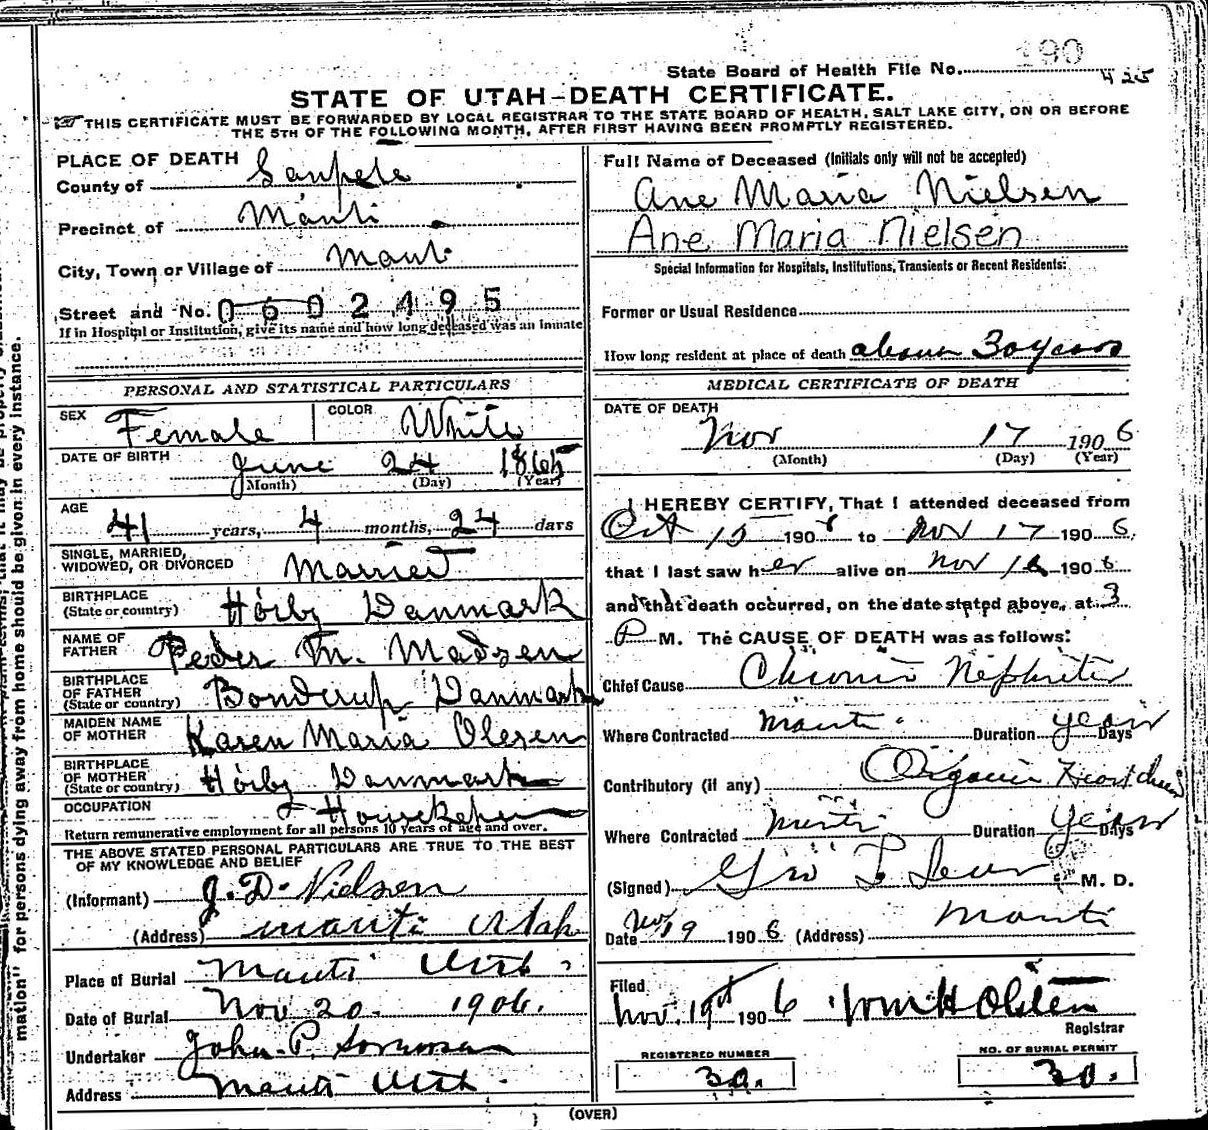 190
State Board of Health File No. 425
STATE OF UTAH-DEATH CERTIFICATE.
THIS CERTIFICATE MUST BE FORWARDED BY LOCAL REGISTRAR TO THE STATE BOARD OF HEALTH, SALT LAKE CITY, ON OR BEFORE
THE 5TH OF THE FOLLOWING MONTH, AFTER FIRST HAVING BEEN PROMPTLY REGISTERED.
PLACE OF DEATH
County of Sanpete
Precinct of Manti
City, Town or Village of Manti
Street and No. 0602495
If in Hospital or Institution, give its name and how long deceased was an inmate
PERSONAL AND STATISTICAL PARTICULARS
SEX Female COLOR White
DATE OF BIRTH June 24 1865
(Month) (Day) (Year)
AGE 41 years, 4 months, 24 days
SINGLE, MARRIED,
WIDOWED, OR DIVORCED Married
BIRTHPLACE
(State or country) Hörby Danmark
NAME OF
FATHER Peder M. Madsen
BIRTHPLACE
OF FATHER
(State or country) Bonderup Danmark
MAIDEN NAME
OF MOTHER Karen Maria Olesen
BIRTHPLACE
OF MOTHER
(State or country) Hörby Danmark
OCCUPATION Housekeper
Return remunerative employment for all persons 10 years of age and over.
THE ABOVE STATED PERSONAL PARTICULARS ARE TRUE TO THE BEST
OF MY KNOWLEDGE AND BELIEF
(Informant) J. D. Nielsen
(Address) Manti Utah
Place of Burial Manti Utah
Date of Burial Nov 20. 1906.
Undertaker John P. Sorensen
Address Manti Utah
Full Name of Deceased (Initials only will not be accepted)
Ane Maria Nielsen
Ane Maria Nielsen
Special Information for Hospitals, Institutions, Transients or Recent Residents:
Former or Usual Residence
How long resident at place of death about 30 years
MEDICAL CERTIFICATE OF DEATH
DATE OF DEATH
Nov 17 1906
(Month) (Day) (Year)
I HEREBY CERTIFY, That I attended deceased from
Oct 15 1906 to Nov 17 1906.
that I last saw her alive on Nov 16 1906
and that death occurred, on the date stated above, at 3
P M. The CAUSE OF DEATH was as follows:
Chief Cause Chronic Nephritis
Where Contracted Manti Duration years Days
Contributory (if any) Organic Heart
Where Contracted Manti Duration years Days
(Signed) Geo L M. D.
Date Nov 19 1906 (Address) Manti
Filed
Nov. 19th 1906 Wm H Olsten
Registrar
REGISTERED NUMBER
30.
NO. OF BURIAL PERMIT
30.
(OVER)
mation" for persons dying away from home should be given in every instance.